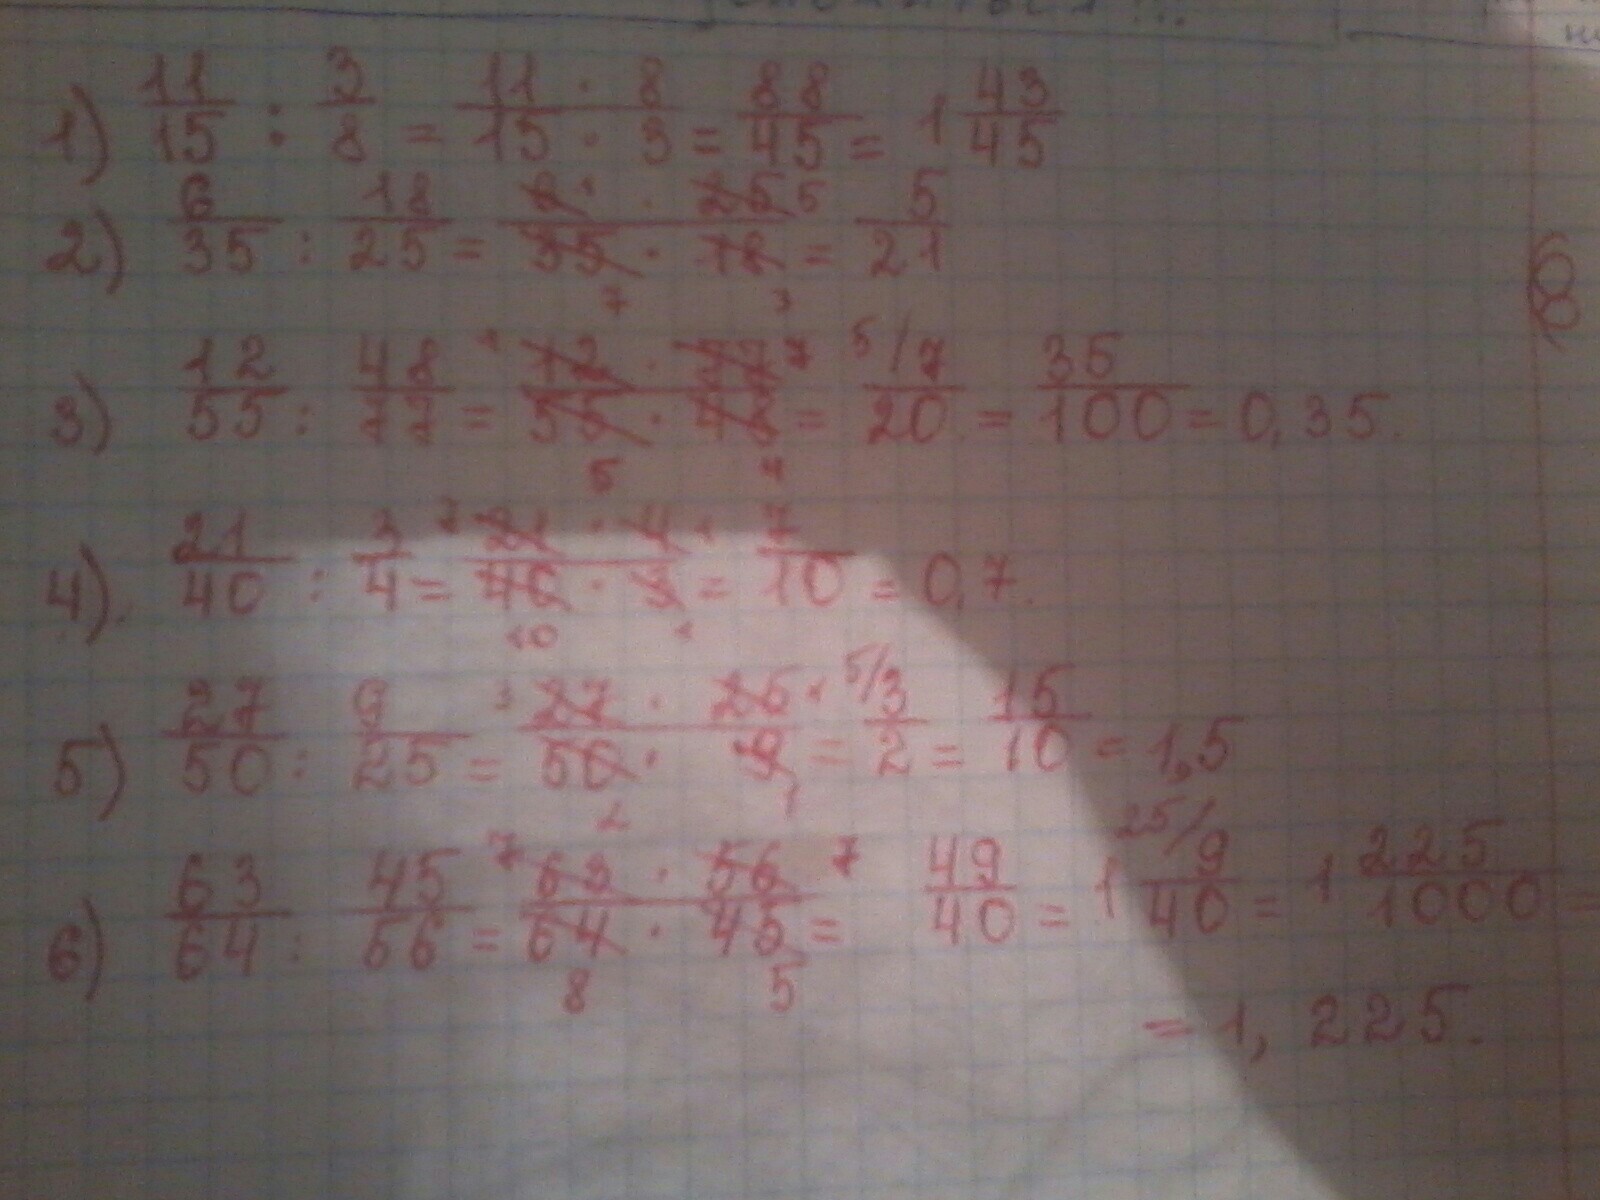 1) 11/15 : 3/8 = 11 · 8/15 · 3 = 88/45 = 1 43/45
2) 6/35 : 18/25 = 6 1 · 25 5/35 7 · 18 3 = 5/21
3) 12/55 : 48/77 = 1 12 · 77 7/55 5 · 48 4 = 5/ 7/20 = 35/100 = 0,35.
4) 21/40 : 3/4 = 7 21 · 4 1/40 10 · 3 1 = 7/10 = 0,7.
5) 27/50 : 9/25 = 3 27 · 25 1/50 2 · 9 1 = 5/ 3/2 = 15/10 = 1,5
6) 63/64 : 45/56 = 7 63 · 56 7/64 8 · 45 5 = 49/40 = 1 25/ 9/40 = 1 225/1000 =
= 1, 225.